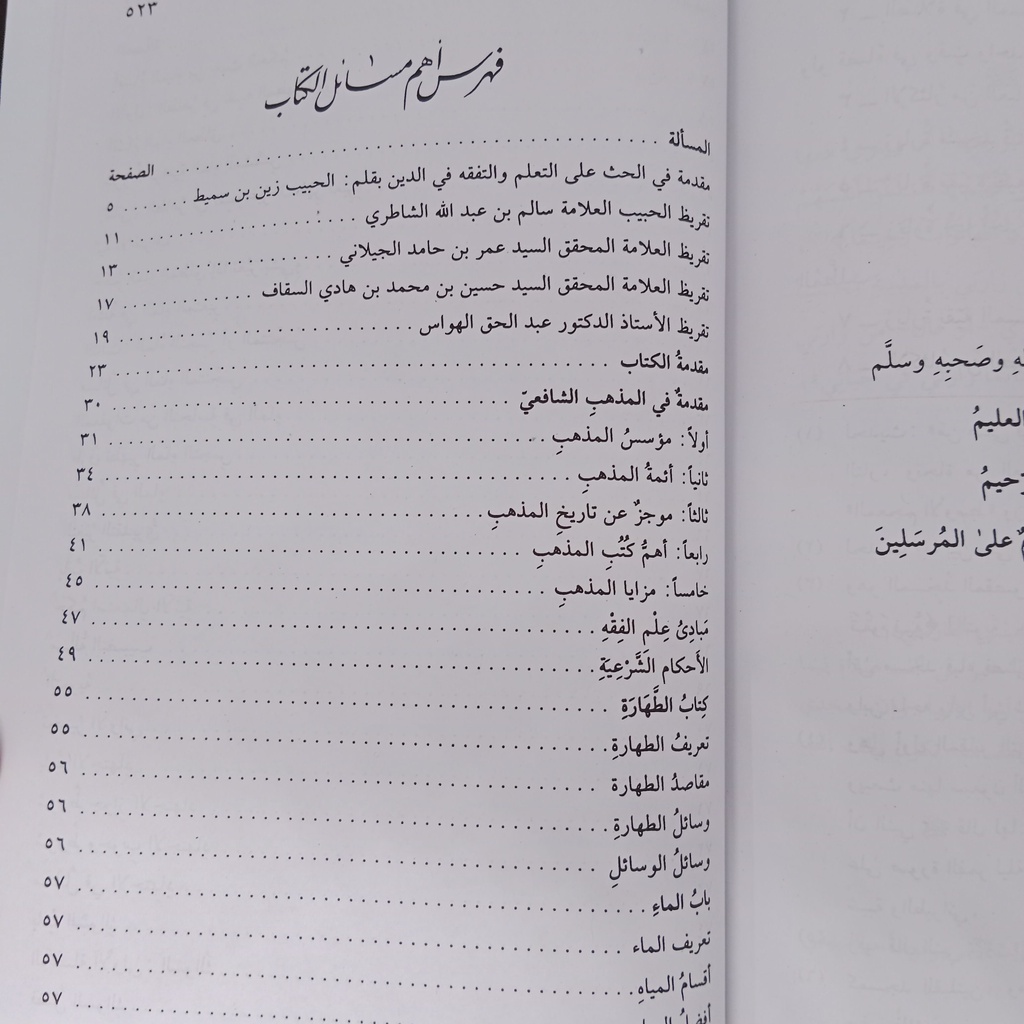 ٥٢٣
فهرس أهم مسائل الكتاب
المسألة . . . . . . . . . . الصفحة
مقدمة في الحث على التعلم والتفقه في الدين بقلم: الحبيب زين بن سميط . . . . . . . ٥
تقريظ الحبيب العلامة سالم بن عبد الله الشاطري . . . . . . . . . . ١١
تقريظ العلامة المحقق السيد عمر بن حامد الجيلاني . . . . . . . . . . ١٣
تقريظ العلامة المحقق السيد حسين بن محمد بن هادي السقاف . . . . . . . . . . ١٧
تقريظ الأستاذ الدكتور عبد الحق الهواس . . . . . . . . . . ١٩
مقدمةُ الكتاب . . . . . . . . . . ٢٣
مقدمةٌ في المذهبِ الشافعيّ . . . . . . . . . . ٣٠
أولاً: مؤسسُ المذهبِ . . . . . . . . . . ٣١
ثانياً: أئمةُ المذهبِ . . . . . . . . . . ٣٤
ثالثاً: موجزٌ عن تاريخِ المذهبِ . . . . . . . . . . ٣٨
رابعاً: أهمُّ كُتُبِ المذهبِ . . . . . . . . . . ٤١
خامساً: مزايا المذهبِ . . . . . . . . . . ٤٥
مَبادِئُ عِلْمِ الفِقْهِ . . . . . . . . . . ٤٧
الأَحكام الشَّرْعِيَّةِ . . . . . . . . . . ٤٩
كِتابُ الطَّهَارَةِ . . . . . . . . . . ٥٥
تعريفُ الطهارةِ . . . . . . . . . . ٥٥
مقاصدُ الطهارة . . . . . . . . . . ٥٦
وسائلُ الطهارةِ . . . . . . . . . . ٥٦
وسائلُ الوسائلِ . . . . . . . . . . ٥٦
بابُ الماءِ . . . . . . . . . . ٥٧
تعريف الماء . . . . . . . . . . ٥٧
أقسامُ المياهِ . . . . . . . . . . ٥٧
أفضلُ . . . . . . . . . . ٥٧
وصَحبِهِ وسلَّم
العليمُ
علىٰ المُرسَلِينَ